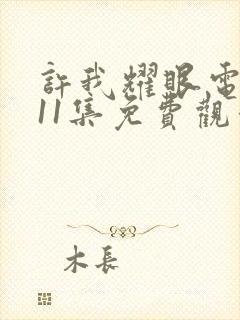 許我耀眼電
11集免費觀
木長